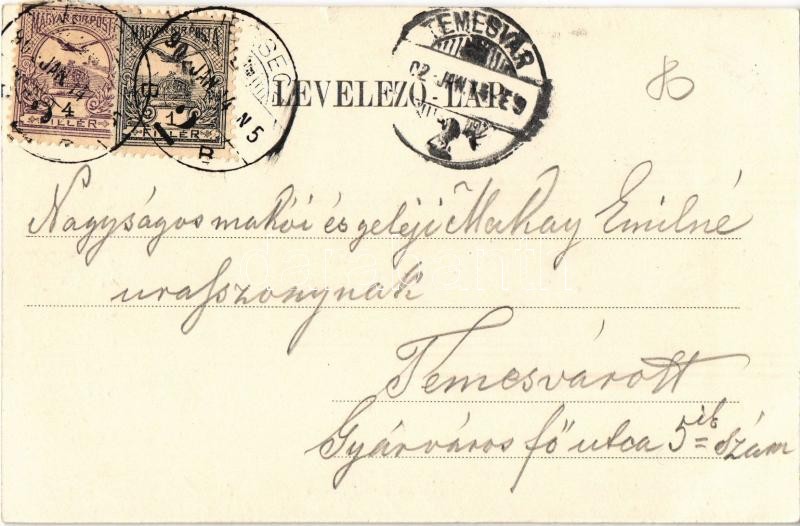 MAGYAR KIR. POSTA
MAGYAR KIR. POSTA
4
FILLÉR
1
FILLÉR
TEMESVÁR
LEVELEZŐ-LAP
80
Nagyságos makói és geléji Makay Emilné
uraszonynak
Temesvárott
Gyárváros fő utca 5ik szám